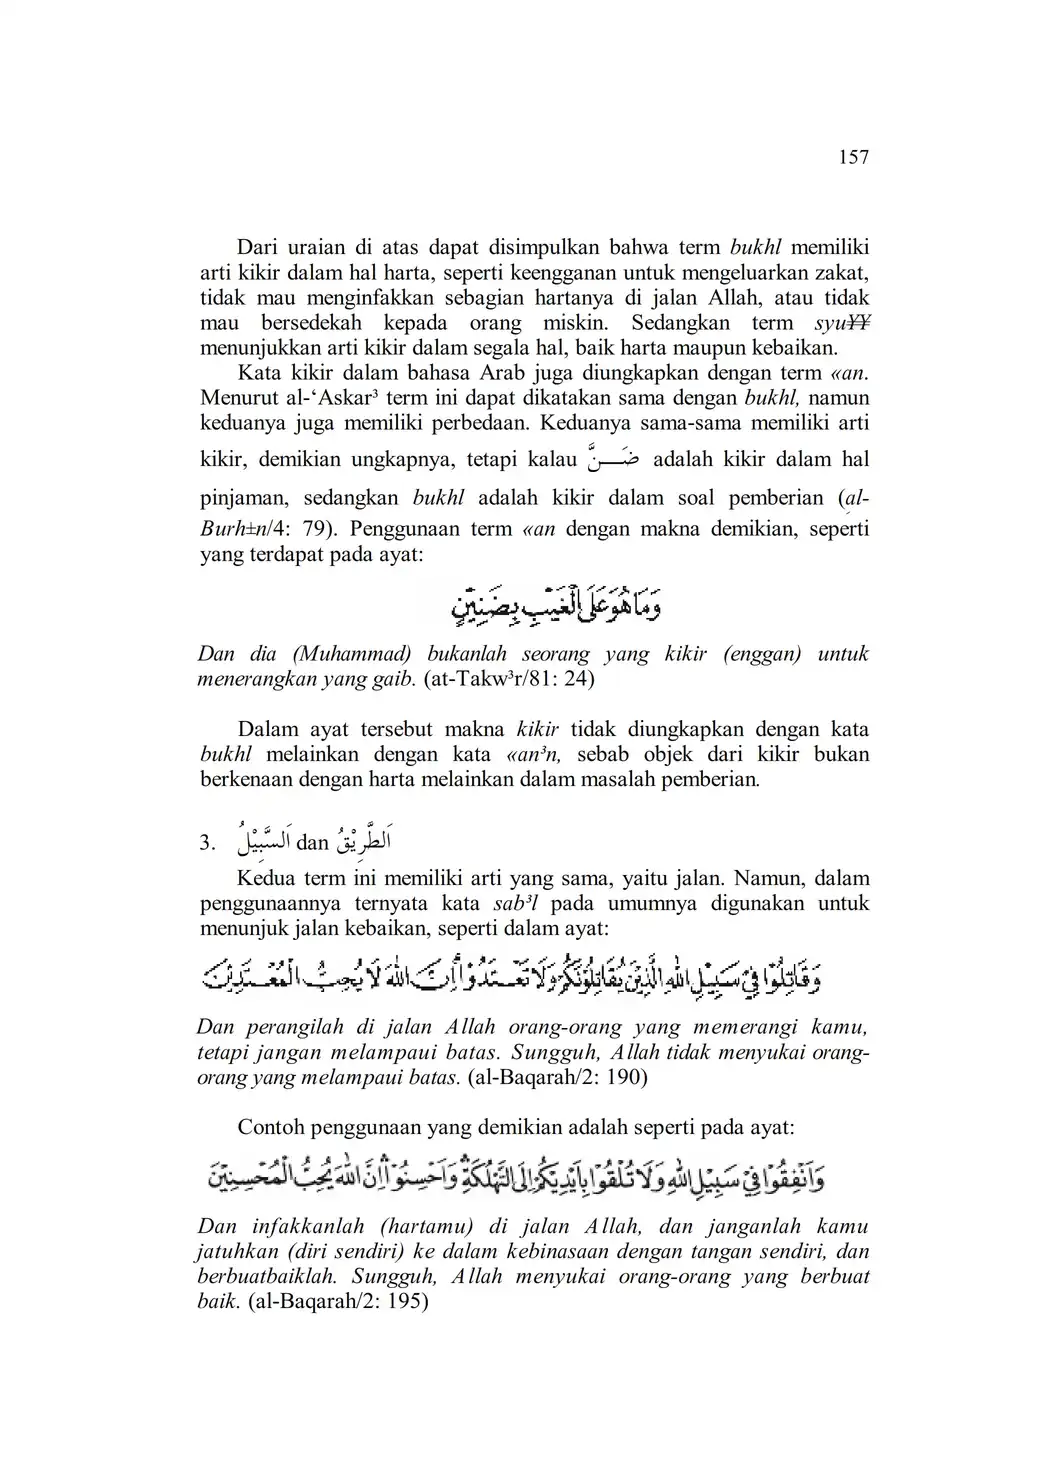 157
Dari uraian di atas dapat disimpulkan bahwa term bukhl memiliki
arti kikir dalam hal harta, seperti keengganan untuk mengeluarkan zakat,
tidak mau menginfakkan sebagian hartanya di jalan Allah, atau tidak
mau bersedekah kepada orang miskin. Sedangkan term syu¥¥
menunjukkan arti kikir dalam segala hal, baik harta maupun kebaikan.
Kata kikir dalam bahasa Arab juga diungkapkan dengan term «an.
Menurut al-‘Askar³ term ini dapat dikatakan sama dengan bukhl, namun
keduanya juga memiliki perbedaan. Keduanya sama-sama memiliki arti
kikir, demikian ungkapnya, tetapi kalau ضَـــنَّ adalah kikir dalam hal
pinjaman, sedangkan bukhl adalah kikir dalam soal pemberian (al-
Burh±n/4: 79). Penggunaan term «an dengan makna demikian, seperti
yang terdapat pada ayat:
وَمَا هُوَ عَلَى الْغَيْبِ بِضَنِيْنٍ
Dan dia (Muhammad) bukanlah seorang yang kikir (enggan) untuk
menerangkan yang gaib. (at-Takw³r/81: 24)
Dalam ayat tersebut makna kikir tidak diungkapkan dengan kata
bukhl melainkan dengan kata «an³n, sebab objek dari kikir bukan
berkenaan dengan harta melainkan dalam masalah pemberian.
3. اَلسَّبِيْلُ dan اَلطَّرِيْقُ
Kedua term ini memiliki arti yang sama, yaitu jalan. Namun, dalam
penggunaannya ternyata kata sab³l pada umumnya digunakan untuk
menunjuk jalan kebaikan, seperti dalam ayat:
وَقَاتِلُوْا فِيْ سَبِيْلِ اللّٰهِ الَّذِيْنَ يُقَاتِلُوْنَكُمْ وَلَا تَعْتَدُوْا ۗ اِنَّ اللّٰهَ لَا يُحِبُّ الْمُعْتَدِيْنَ
Dan perangilah di jalan Allah orang-orang yang memerangi kamu,
tetapi jangan melampaui batas. Sungguh, Allah tidak menyukai orang-
orang yang melampaui batas. (al-Baqarah/2: 190)
Contoh penggunaan yang demikian adalah seperti pada ayat:
وَاَنْفِقُوْا فِيْ سَبِيْلِ اللّٰهِ وَلَا تُلْقُوْا بِاَيْدِيْكُمْ اِلَى التَّهْلُكَةِ ۛ وَاَحْسِنُوْا ۛ اِنَّ اللّٰهَ يُحِبُّ الْمُحْسِنِيْنَ
Dan infakkanlah (hartamu) di jalan Allah, dan janganlah kamu
jatuhkan (diri sendiri) ke dalam kebinasaan dengan tangan sendiri, dan
berbuatbaiklah. Sungguh, Allah menyukai orang-orang yang berbuat
baik. (al-Baqarah/2: 195)